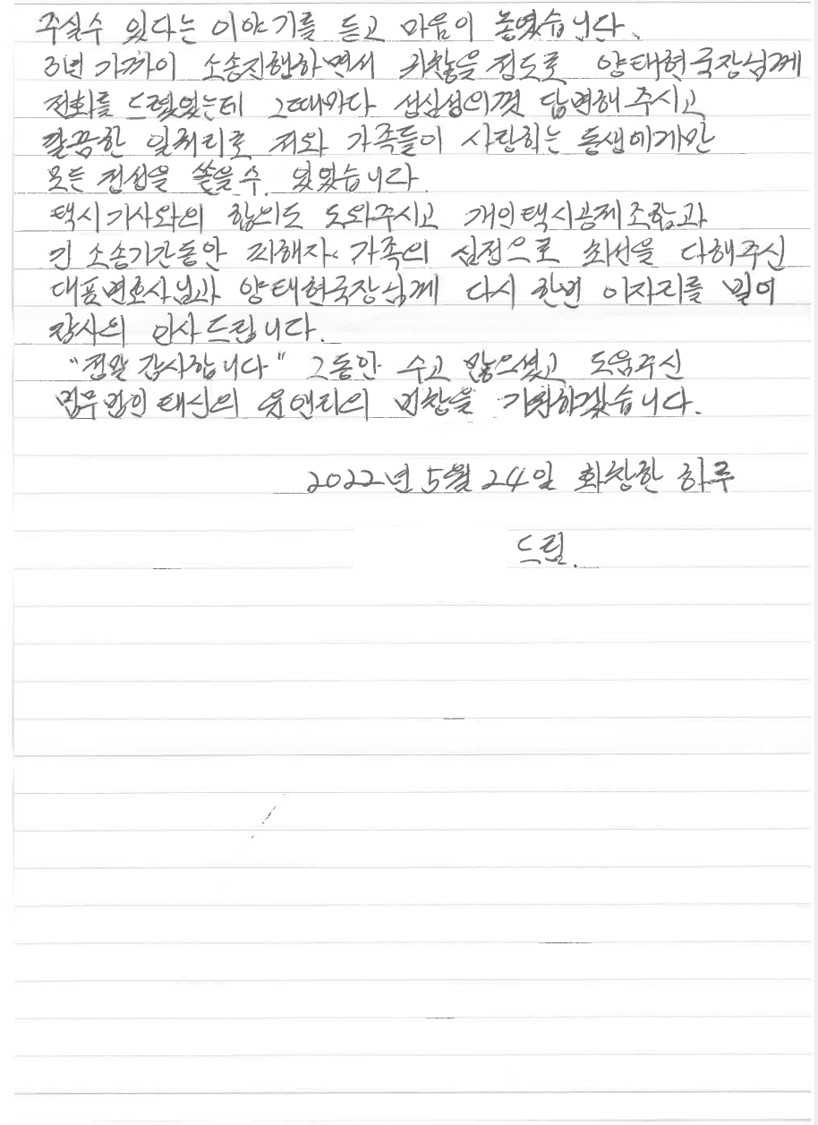 주실수 있다는 이야기를 듣고 마음이 놓였습니다.
3년 가까이 소송진행하면서 귀찮을 정도로 양태현국장님께
전화를 드렸었는데 그때마다 성심성의껏 답변해주시고
깔끔한 일처리로 저와 가족들이 사랑하는 동생에게만
모든 정성을 쏟을수 있었습니다.
택시기사와의 합의도 도와주시고 개인택시공제조합과
긴 소송기간동안 피해자 가족의 심정으로 최선을 다해주신
대표변호사님과 양태현국장님께 다시 한번 이자리를 빌어
감사의 인사드립니다.
"정말 감사합니다" 그동안 수고 많으셨고 도움주신
법무법인 태신의 윤앤리의 번창을 기원하겠습니다.
2022년 5월 24일 화창한 하루
드림.